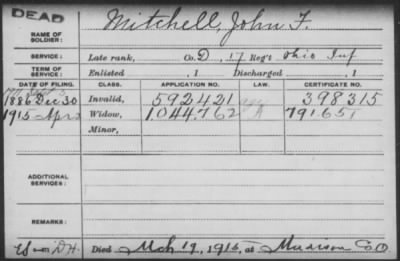 DEAD
NAME OF SOLDIER: Mitchell, John F.
SERVICE: Late rank, Co. D, 17 Reg't Ohio Inf
TERM OF SERVICE: Enlisted , 1 Discharged , 1
DATE OF FILING. CLASS. APPLICATION NO. LAW. CERTIFICATE NO.
1886 Dec 30 Invalid, 592421 398315
1915 Apr 2 Widow, 1044762 A 791651
Minor,
ADDITIONAL SERVICES:
REMARKS:
Died Mch 19, 1915, at Co O